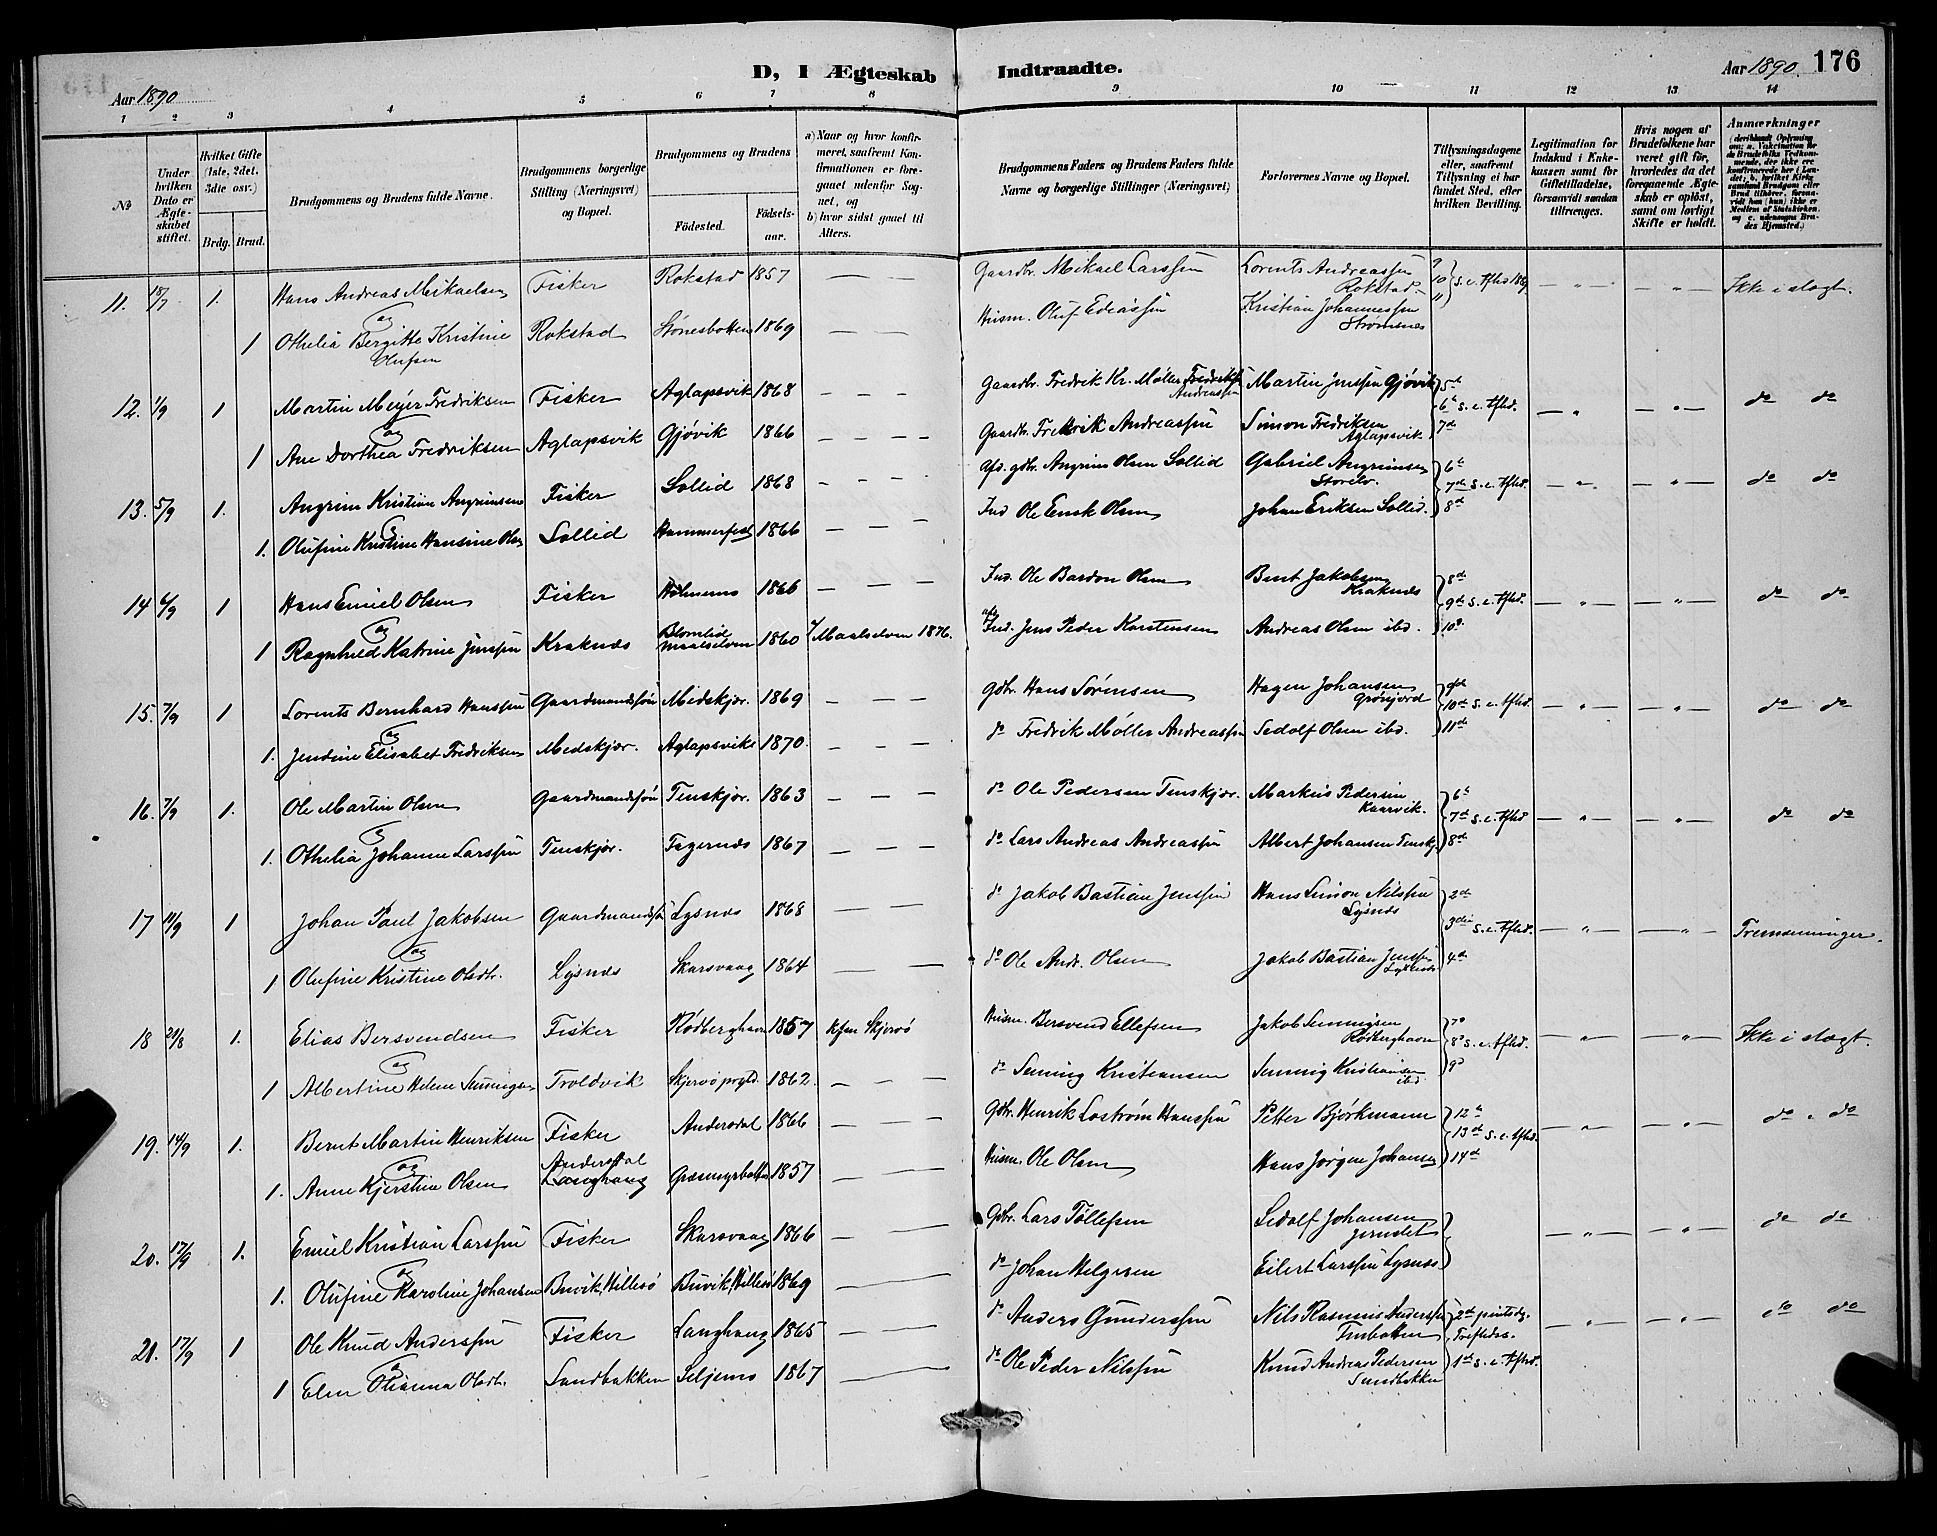 D, I Ægteskab Indtraadte.
Aar 1890
Aar 1890. 176
1 2 3 4 5 6 7 8 9 10 11 12 13 14
No
Under hvilken Dato er Ægteskabet stiftet.
Hvilket Gifte (1ste, 2det, 3die osv.)
Brdg. Brud.
Brudgommens og Brudens fulde Navne.
Brudgommens borgerlige Stilling (Næringsvei) og Bopæl.
Brudgommens og Brudens
Fødested. Fødselsaar.
a) Naar og hvor konfirmeret, saafremt Konfirmationen er foregaaet udenfor Sognet, og
b) hvor sidst gaaet til Alters.
Brudgommens Faders og Brudens Faders fulde Navne og borgerlige Stillinger (Næringsvei)
Forlovernes Navne og Bopæl.
Tillysningsdagene eller, saafremt Tillysning ei har fundet Sted, efter hvilken Bevilling.
Legitimation for Indskud i Enkekassen samt for Giftetilladelse, forsaavidt saadan tiltrænges.
Hvis nogen af Brudefolkene har været gift før, hvorledes da det foregaaende Ægteskab er opløst, samt om lovligt Skifte er holdt.
Anmærkninger
(deriblandt Oplysning om: a. Vakcination for de Brudefolks Vedkommende, der ikke ere konfirmerede her i Landet; b. hvilket Kirkesamfund Brudgom eller Brud tilhører, forsaavidt han (hun) ikke er Medlem af Statskirken, og c. udensogns Brudes Hjemsted.)
11. 18/7 1. Hans Andreas Mikaelsen Fisker Rokstad 1857 — — Gaardbr. Mikael Larssen Lorents Andreassen Rokstad 9 10 11 s.e. tfhd 1890 — " — — " — Ikke i slægt.
og
1 Othelia Bergitte Kristine Olufsen Rokstad Stønesbotten 1869 — — Husm. Oluf Edeassen Kristian Johannessen Strømsnes
12. 1/9 1 Martin Meyer Fredriksen Fisker Aglapsvik 1868 — — Gaardbr. Fredrik Kr. Møller Andreassen Martin Jenssen Gjøvik 5d 6te s.e. tfhd. 7d — " — " — do do
og
1 Ane Dorthea Fredriksen Aglapsvik Gjøvik 1866 — — — Gaardbr. Fredrik Andreassen Simon Fredriksen Aglapsvik
13. 5/9 1. Angrim Kristian Angrimsen Fisker Sollid 1868 — — — Afd. gdbr. Angrim Olsen Sollid Gabriel Angrimsen 6te 7de s.e. tfhd. 8de — " — — " — do do
og
1. Olufine Kristine Hansine Olsen Sollid Hammerfest 1866 — — — Ind. Ole Enok Olsen Johan Eriksen Sollid.
14 6/9 1 Hans Emiel Olsen Fisker Holmenes 1866 — — — Ind. Ole Bardon Olsen Bent Jakobsen Kraknes 8de 9de s.e. tfhd. 10d — " — — " — do do
og
1 Ragnhild Katrine Jenssen Kraknes Blomlid Maalselven 1860 a/ Maalselven 1876. Ind. Jens Peder Karstensen Andreas Olsen ibd.
15. 7/9 1 Lorents Bernhard Hanssen Gaardmandssøn Medskjær. 1869 — — — Gdbr. Hans Sørensen Hagen Johansen Grønjord 9de 10de s.e. tfhd. 11de — " — — " — do do
og
1. Jendine Elisabet Fredriksen Medskjær. Aglapsvik 1870. — — — do Fredrik Møller Andreassen Sedolf Olsen ibd.
16. 7/9 1. Ole Martin Olsen Gaardmandssøn Tenskjær. 1863 — — — do Ole Pedersen Tenskjær. Markus Pedersen Kaarvik. 6te 7de s.e. tfhd 8de — " — — " — do do
og
1. Othelia Johanne Larssen Tenskjær. Fagernes 1867 — — — do Lars Andreas Andreassen Albert Johansen Tenskj.
17 11/9 1 Johan Paul Jakobsen Gaardmandssøn Lysnes 1868 — — — do Jakob Bastian Jenssen Hans Simon Nilssen Lysnes 2de 3die s.e. tfhd. 4de — " — — " — Fremmninger.
og
1 Olufine Kristine Olsdtr. Lysnes Skarsvaag 1864 — — do Ole Andr. Olsen Jakob Bastian Jenssen Lysnes
18 21/8 1. Elias Bersvendsen Fisker Rødberghavn 1857 kfm Skjervø Husm. Bersvend Ellefsen Jakob Senningsen Rødberghavn 7d 8d s.e. tfhd. 9d — " — — " — Ikke i slægt.
og
1 Albertine Helene Senningsen Troldvik Skjervø prgld. 1862. — — — do Senning Kristiansen Senning Kristiansen ibd.
19. 14/9 1. Bernt Martin Henriksen Fisker Andersdal 1866 — — Gdbr. Henrik Lastrøm Hanssen Petter Bjørkmann 12te 13de s.e. tfhd. 14de — " — — " — do " do
og
1. Anne Kjerstine Olsen Andersdal Langhaug Græsmyrbotten 1857 — — Husm. Ole Olsen Hans Jørgen Johansen
20. 17/9 1. Emiel Kristian Larssen Fisker Skarsvaag 1866 — — Gdbr. Lars Tøllefsen Sedolf Johansen — " — — " — do do
og
1. Olufine Karoline Johansen Buvik, Hillesø Buvik, Hillesø 1869 — do Johan Helgesen Eilert Larssen Lysnes
21. 17/9 1 Ole Knud Anderssen Fisker Langhaug 1865 — — do Anders Gunderssen Nils Rasmus Anderssen 2de pintsdg. Trefhds. 1ste s.e. tfhd. — " — — " — do do
og
1 Elen Olianna Olsdtr. Sandbakken Seljenes 1867 — do Ole Peder Nilssen Knud Andreas Pedersen Sandbakken